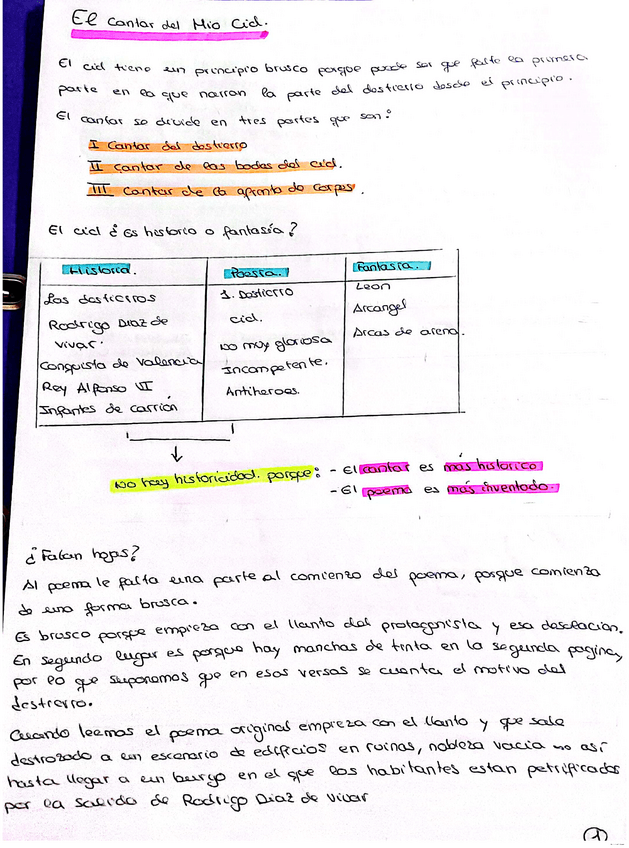 El Cantar del Mio Cid.
El cid tiene un principio brusco porque puede ser que falte la primera
parte en la que narran la parte del destierro desde el principio.
El cantar se divide en tres partes que son:
I Cantar del destierro
II Cantar de las bodas del cid.
III Cantar de la afrenta de corpes.
El cid ¿Es historia o fantasía?
Historia.
Los destierros
Rodrigo Diaz de
vivar.
Conquista de Valencia
Rey Alfonso VI
Infantes de carrión
Poesía.
1. Destierro
cid.
no muy gloriosa
Incompetente.
Antiheroes.
Fantasía.
Leon
Arcangel
Arcas de arena.
No hay historicidad. porque: - El cantar es más historico
- El poema es más inventado.
¿Faltan hojas?
Al poema le falta una parte al comienzo del poema, porque comienza
de una forma brusca.
Es brusco porque empieza con el llanto del protagonista y esa
En segundo lugar es porque hay manchas de tinta en la segunda pagina,
por lo que suponemos que en esos versos se cuenta el motivo del
destierro.
Cuando leemos el poema original empieza con el llanto y que sale
destrozado a un escenario de edificios en ruinas, nobleza vacia no así
hasta llegar a un burgo en el que los habitantes estan petrificados
por la salida de Rodrigo Diaz de Vivar
1